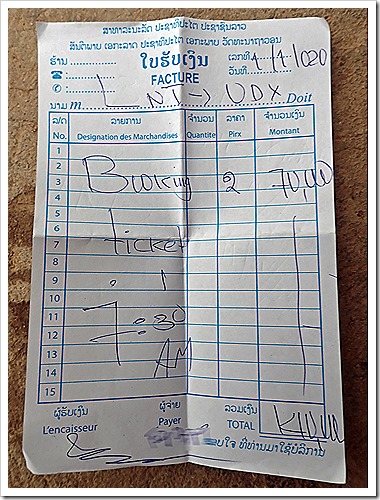 ສາທາລະນະລັດ ປະຊາທິປະໄຕ ປະຊາຊົນລາວ
ສັນຕິພາບ ເອກະລາດ ປະຊາທິປະໄຕ ເອກະພາບ ວັດທະນາຖາວອນ
ຮ້ານ ໃບຮັບເງິນ ເລກທີ
☎ FACTURE ວັນທີ
ນາມ m NT → UDX Doit
ລ/ດ ລາຍການ ຈຳນວນ ລາຄາ ຈຳນວນເງິນ
No. Designation des Marchandises Quantite Pirx Montant
1
2
3 Booking 2
4
5
6
7 ticket
8
9
10 1
11
12 7:30
13 AM
14
15
ຜູ້ຮັບເງິນ ຜູ້ຈ່າຍ ລວມເງິນ
L'encaisseur Payer TOTAL
ຂອບໃຈ ທີ່ທ່ານມາໃຊ້ບໍລິການ